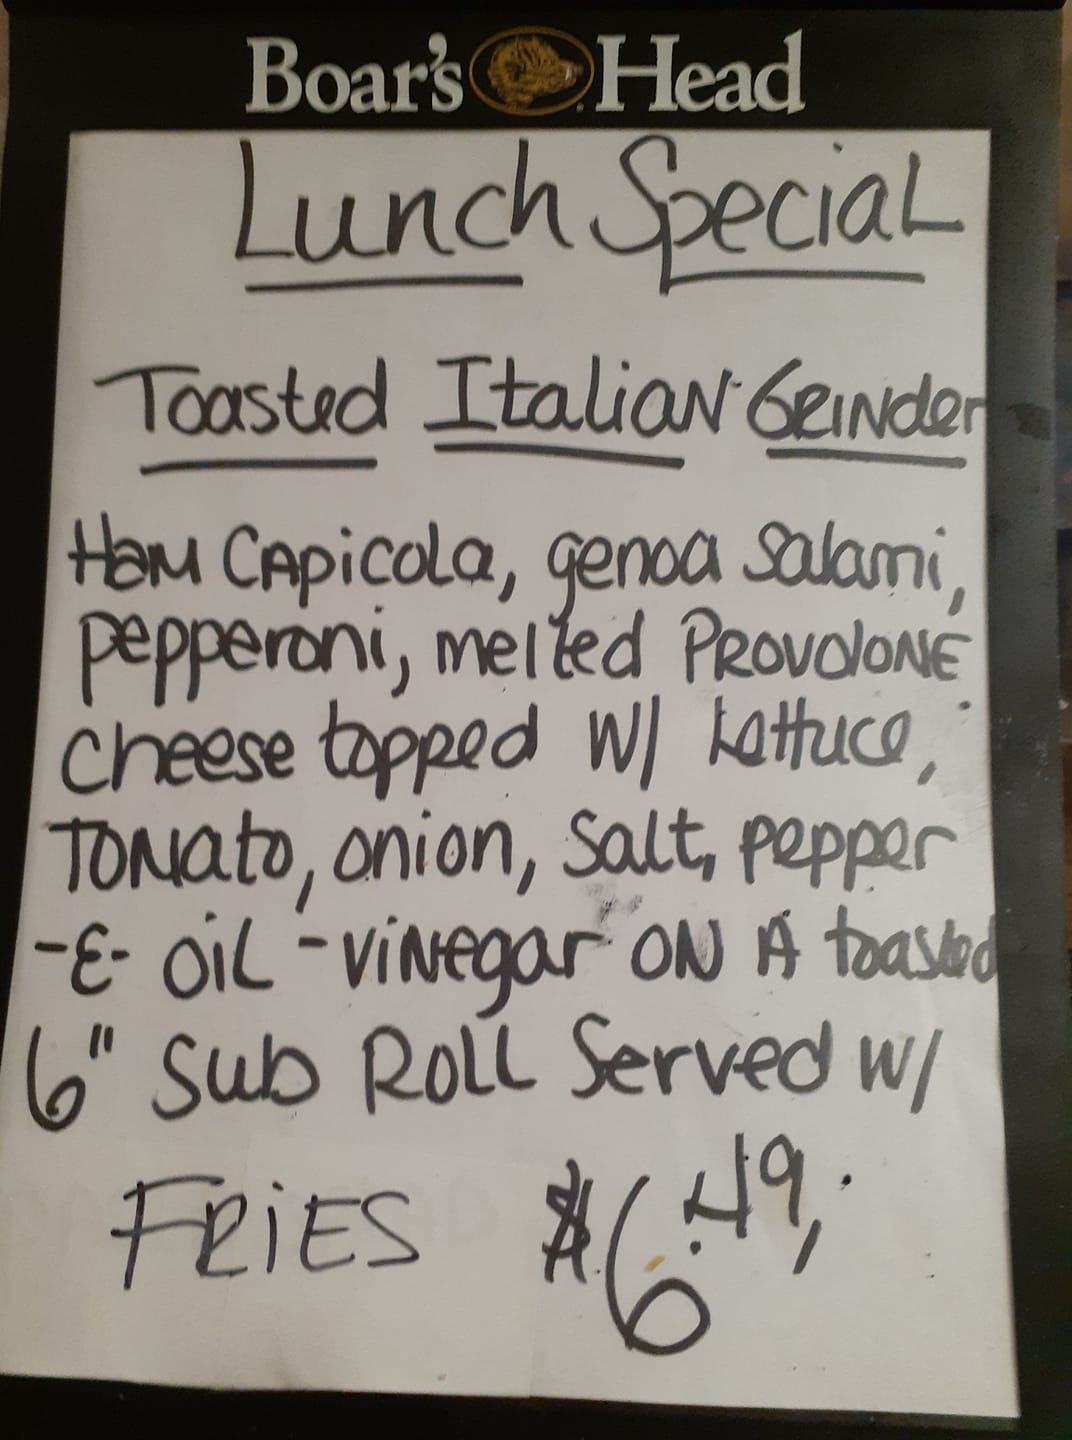 Boar's Head
Lunch Special
Toasted Italian Grinder
Ham Capicola, genoa Salami,
pepperoni, melted PROVOLONE
cheese topped w/ Lettuce,
TOMato, onion, Salt, pepper
-&- OiL - ViNegar ON A toasted
6" Sub ROLL Served w/
FRiES $6.49